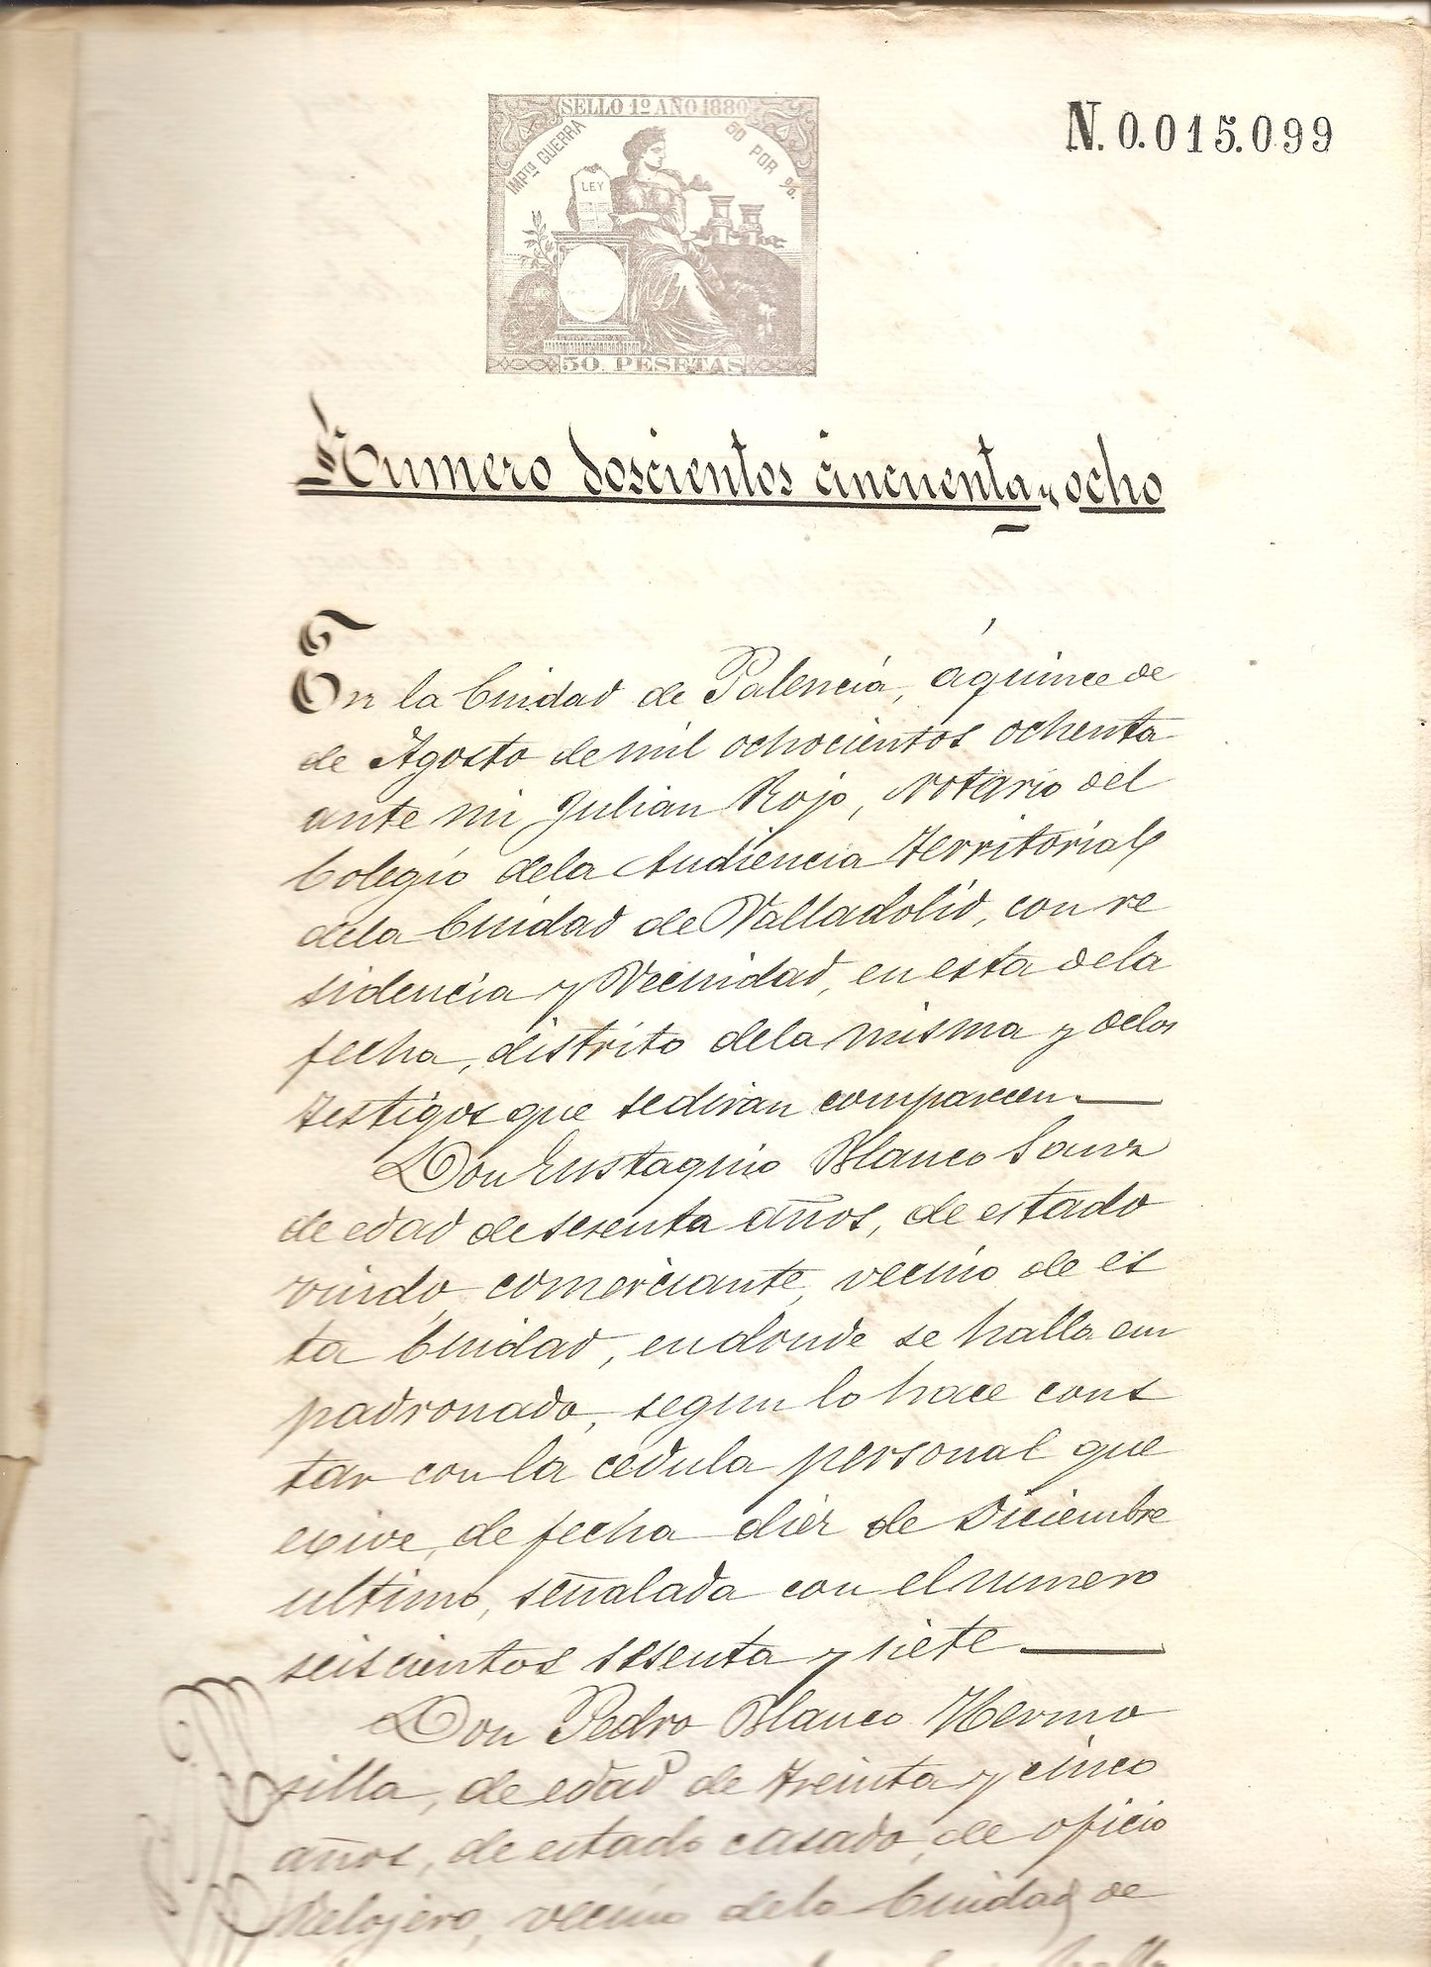 SELLO 1º AÑO 1880
IMPTO GUERRA
50 POR %.
LEY
50. PESETAS
N.0.015.099
Numero doscientos cincuenta y ocho
En la Ciudad de Palencia, á quince de
de Agosto de mil ochocientos ochenta
ante mi Julian Rojo, Notario del
Colegio dela Audiencia Territorial
dela Ciudad de Valladolid, con re
sidencia y Vecindad, en esta dela
fecha, distrito dela misma y delos
testigos que sediran comparecen
Don Eustaquio Blanco Sanz
de edad de sesenta años, de estado
viudo, comerciante, vecino de es
ta Ciudad, en donde se halla em
padronado, segun lo hace cons
tar con la cedula personal que
exive, de fecha diez de Diciembre
ultimo, señalada con el numero
seiscientos sesenta y siete
Don Pedro Blanco Hermo
silla, de edad de treinta y cinco
años, de estado casado, de oficio
Relojero, vecino dela Ciudad de